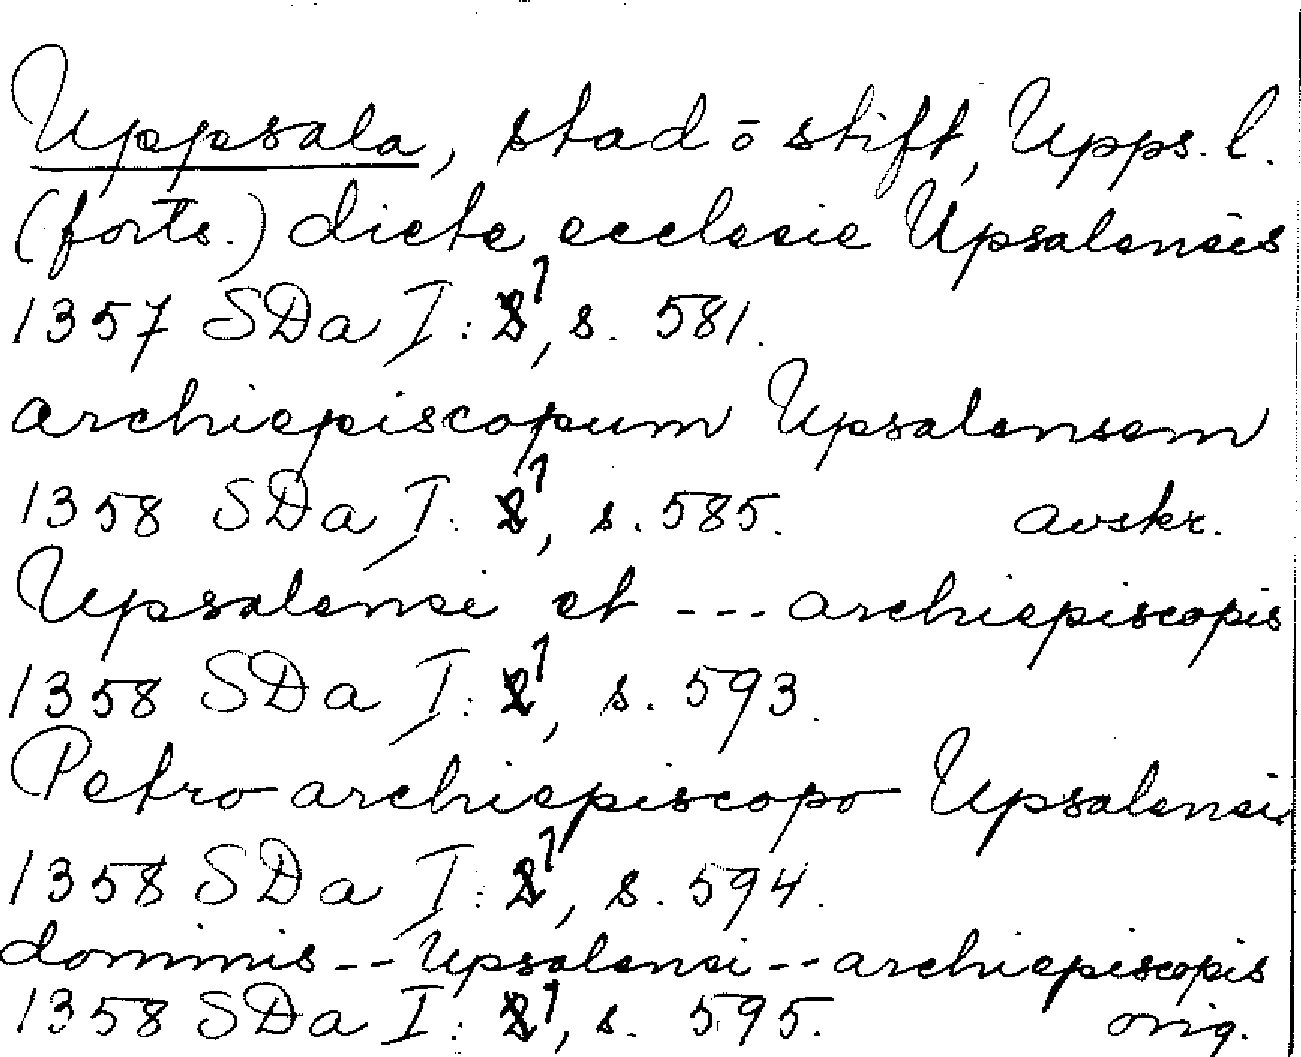 Uppsala, stad o stift, Upps. l.
(forts.) dicte ecclesie Upsalensis
1357 SDa I: 1, s. 581.
archiepiscopum Upsalensem
1358 SDa I: 1, s. 585. avskr.
Upsalensi et --- archiepiscopis
1358 SDa I: 1, s. 593.
Petro archiepiscopo Upsalensi
1358 SDa I: 1, s. 594.
dominis -- Upsalensi -- archiepiscopis
1358 SDa I: 1, s. 595. orig.